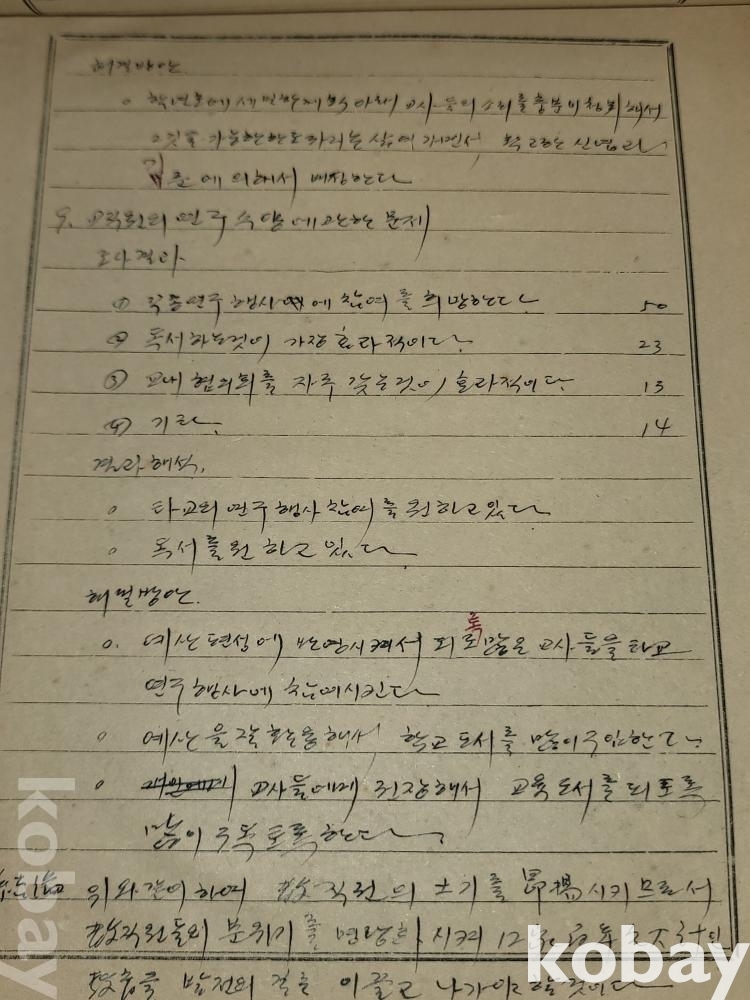 해결방안
○ 학년초에 세밀한 계획아래 교사들의 소리를 충분히 참작해서
가능한한도 차리는 싫여 가면서, 학교장은 신념과
기준에 의해서 배정한다
9. 교직원의 연구 수양에 관하는 문제
조사결과
① 각종연구행사에 참여를 희망한다. 50
② 독서하는것이 가장 효과적이다. 23
③ 교내 협의회를 자주 갖는것이 효과적이다. 13
④ 기타. 14
결과해석.
○ 타교의 연구행사 참여를 원하고있다
○ 독서를 원하고 있다.
해결방안.
○. 예산편성에 반영시켜서 되도록 많은 교사들을 타교
연구행사에 참여시킨다
○ 예산을 잘 활용해서, 학교 도서를 많이 구입한다.
○ 교사들에게 권장해서 교육도서를 되도록
많이 구독토록 한다.
위와같이 하여 敎직원의 士기를 昻揚시키므로서
敎직원들의 분위기를 명랑화시켜 12
발전의 길로 이끌고 나가야 할것이다
kobay
kobay